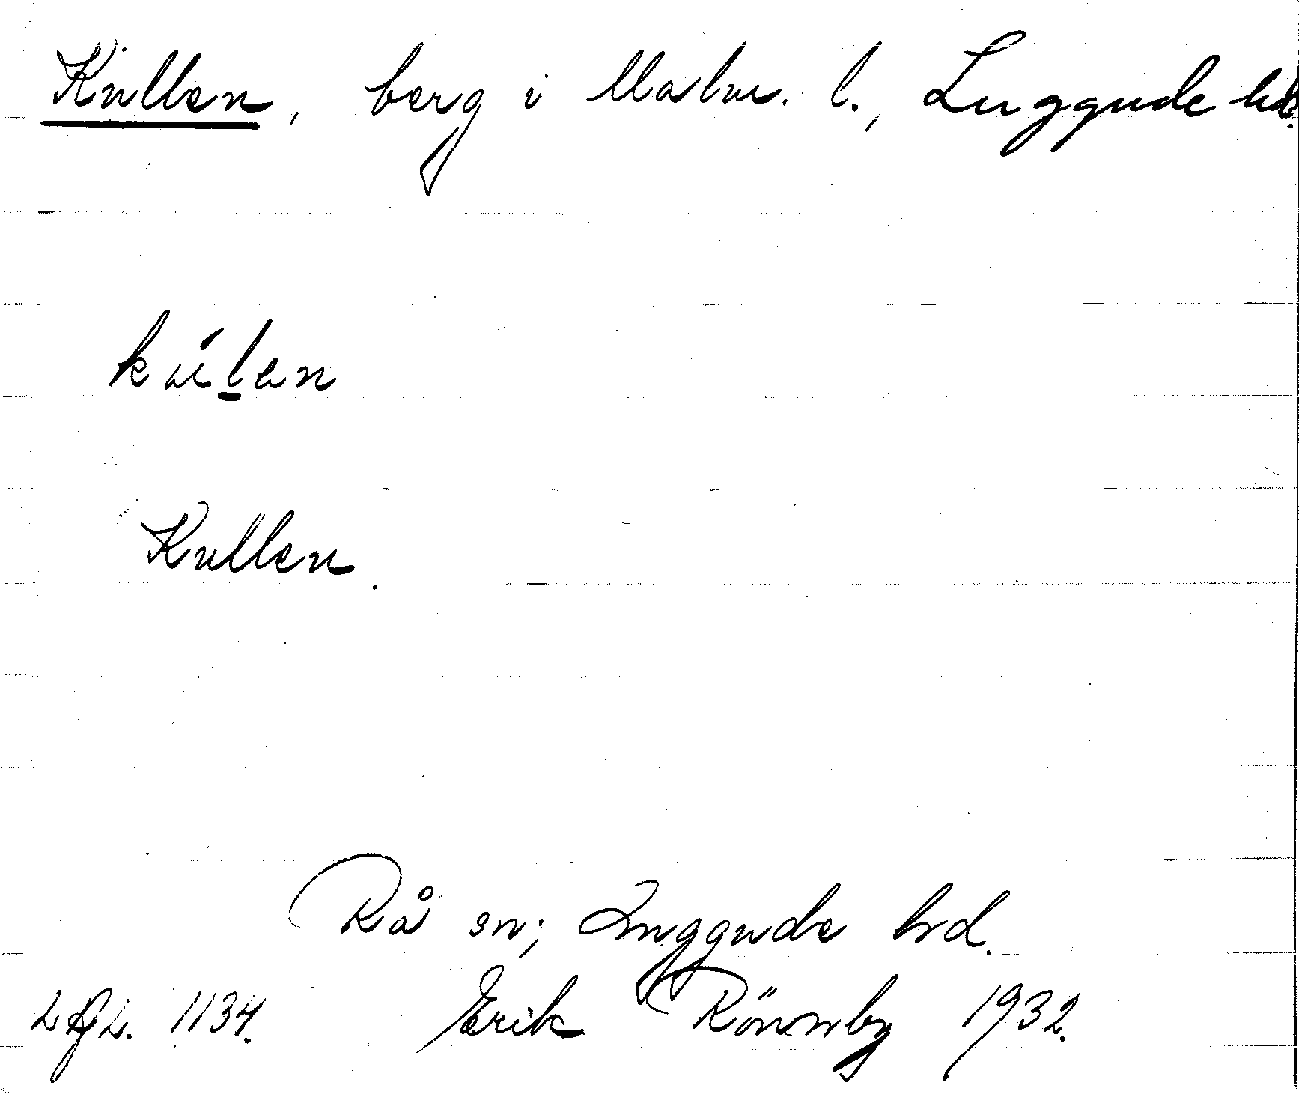 Kullen, berg i Malm. l., Luggude hd.
kúl̲en
Kullen.
Rå sn; Luggude hrd.
Erik Rönnby 1932.
1134.